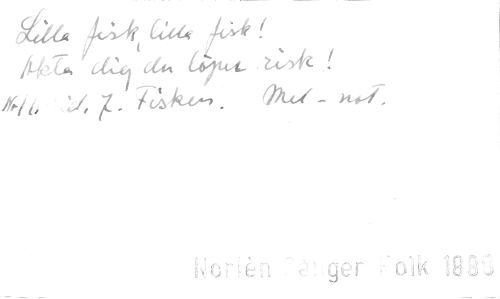 Lilla fisk, lilla fisk!
Akta dig du löper risk!
No 1. sid. 7. Fisken. Mel-not.
Norlén Sånger Folk 1889